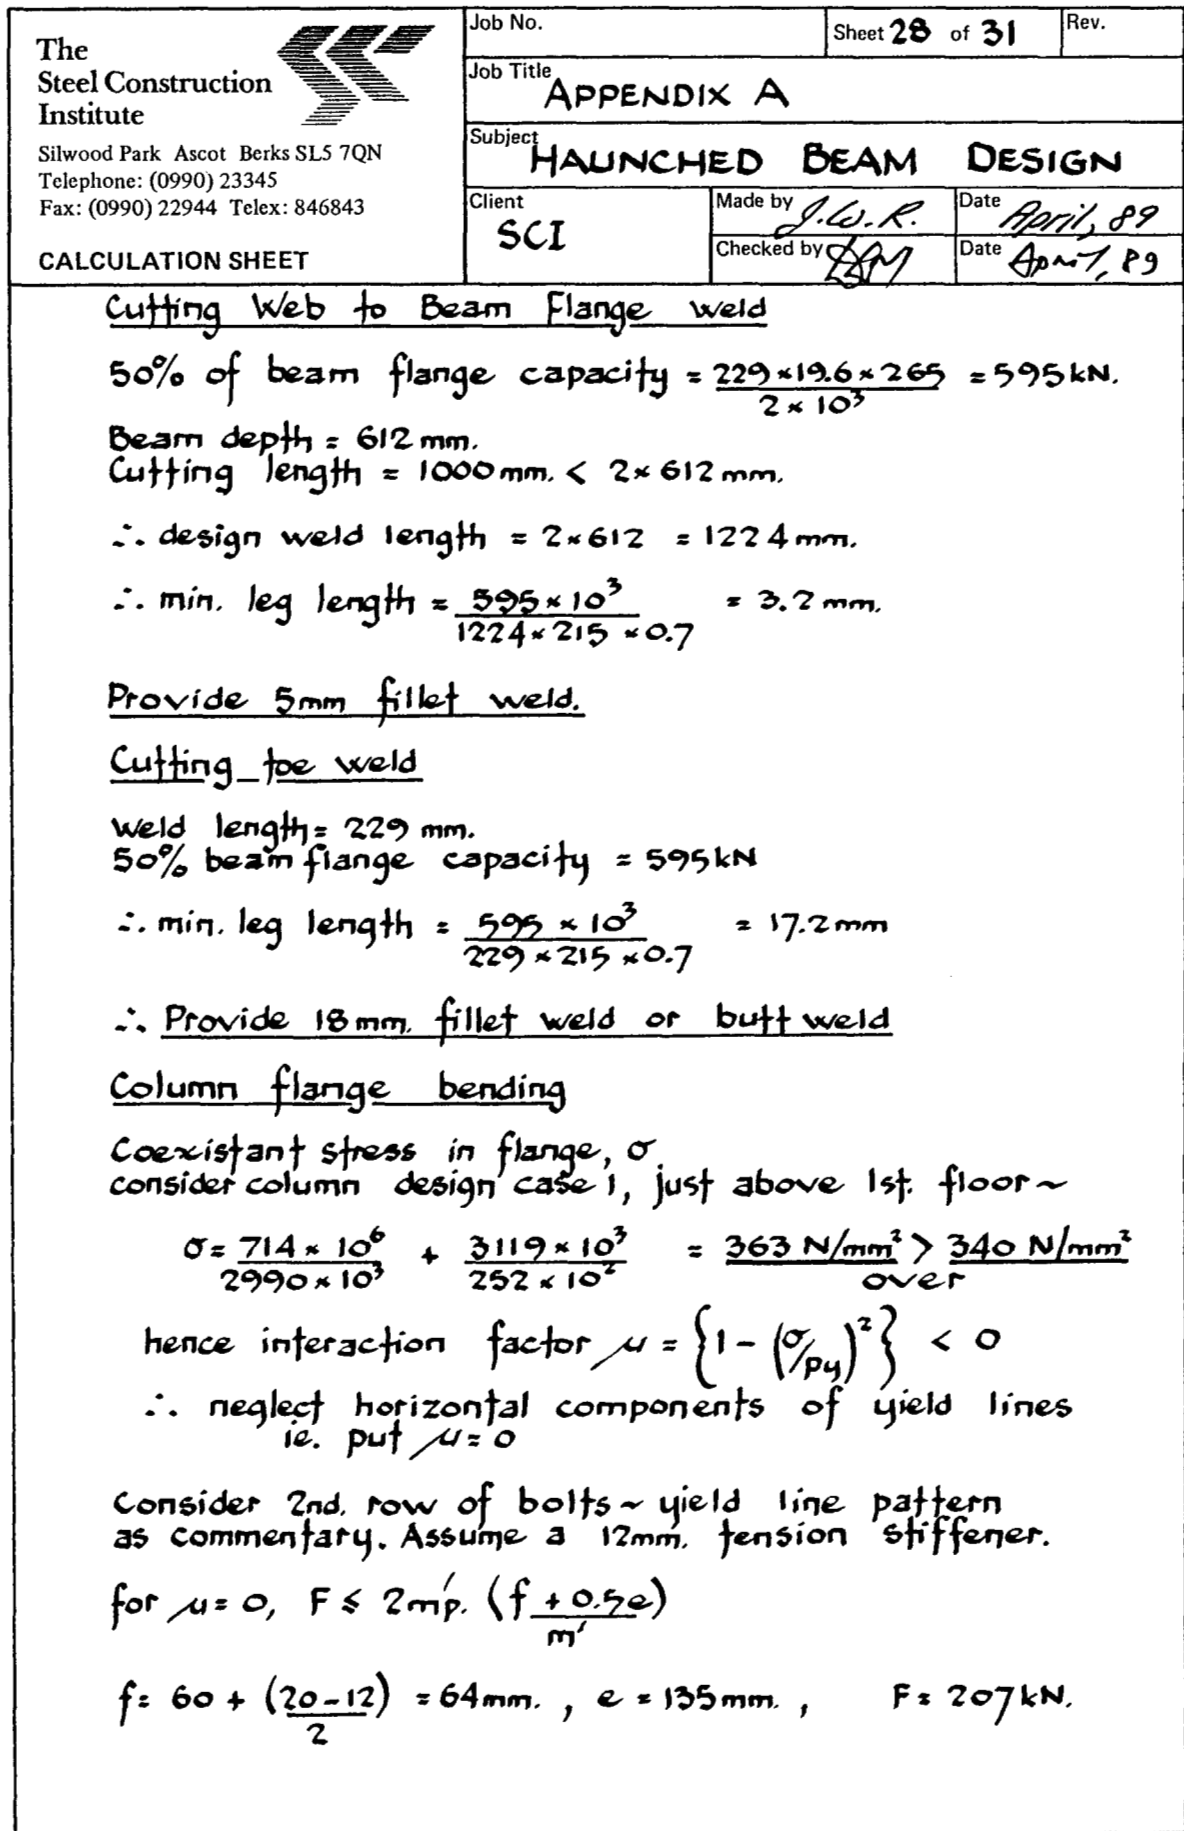 The
Steel Construction
Institute
Silwood Park Ascot Berks SL5 7QN
Telephone: (0990) 23345
Fax: (0990) 22944 Telex: 846843
CALCULATION SHEET
Job No.
Sheet 28 of 31
Rev.
Job Title
APPENDIX A
Subject
HAUNCHED BEAM DESIGN
Client
SCI
Made by J.W.R.
Date April, 89
Checked by
Date April, 89
Cutting Web to Beam Flange weld
50% of beam flange capacity = 229 × 19.6 × 265 / 2 × 10³ = 595 kN.
Beam depth = 612 mm.
Cutting length = 1000 mm. < 2 × 612 mm.
∴ design weld length = 2 × 612 = 1224 mm.
∴ min. leg length = 595 × 10³ / 1224 × 215 × 0.7 = 3.2 mm.
Provide 5mm fillet weld.
Cutting toe weld
Weld length = 229 mm.
50% beam flange capacity = 595 kN
∴ min. leg length = 595 × 10³ / 229 × 215 × 0.7 = 17.2 mm
∴ Provide 18 mm. fillet weld or butt weld
Column flange bending
Coexistant stress in flange, σ
consider column design case 1, just above 1st. floor ~
σ = 714 × 10⁶ / 2990 × 10³ + 3119 × 10³ / 252 × 10² = 363 N/mm² > 340 N/mm²
over
hence interaction factor μ = {1 - (σ/py)²} < 0
∴ neglect horizontal components of yield lines
ie. put μ = 0
Consider 2nd. row of bolts ~ yield line pattern
as commentary. Assume a 12mm. tension stiffener.
for μ = 0, F ≤ 2m'p. (f + 0.5e / m')
f = 60 + (20 - 12 / 2) = 64 mm. , e = 135 mm. , F = 207 kN.